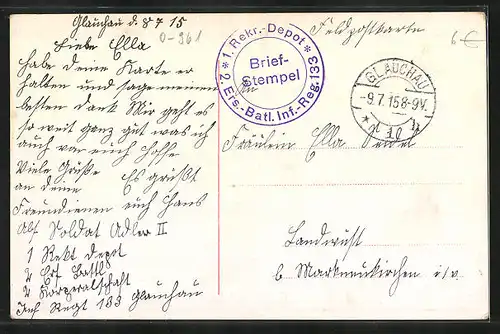 Glauchau d. 8 7 15
0-961
Liebe Ella
habe deine Karte er
halten und sage meinen
besten Dank Mir geht es
so weit ganz gut was ich
auch von euch hoffe
Viele Grüße Es grüßt
an deine
Freundienen euch Hans
Abs Soldat Adler II
1 Rekt Depot
2 Ers Batl
2 Korporalschaft
Inf Regt 133 Glauchau
* 1. Rekr.-Depot *
Brief-
Stempel
2. Ers.-Batl. Inf.-Reg. 133
Feldpostkarte
6-€
GLAUCHAU
-9.7.15 8-9V.
Fräulein Ella Seidel
Landwüst
b Markneukirchen i/v.